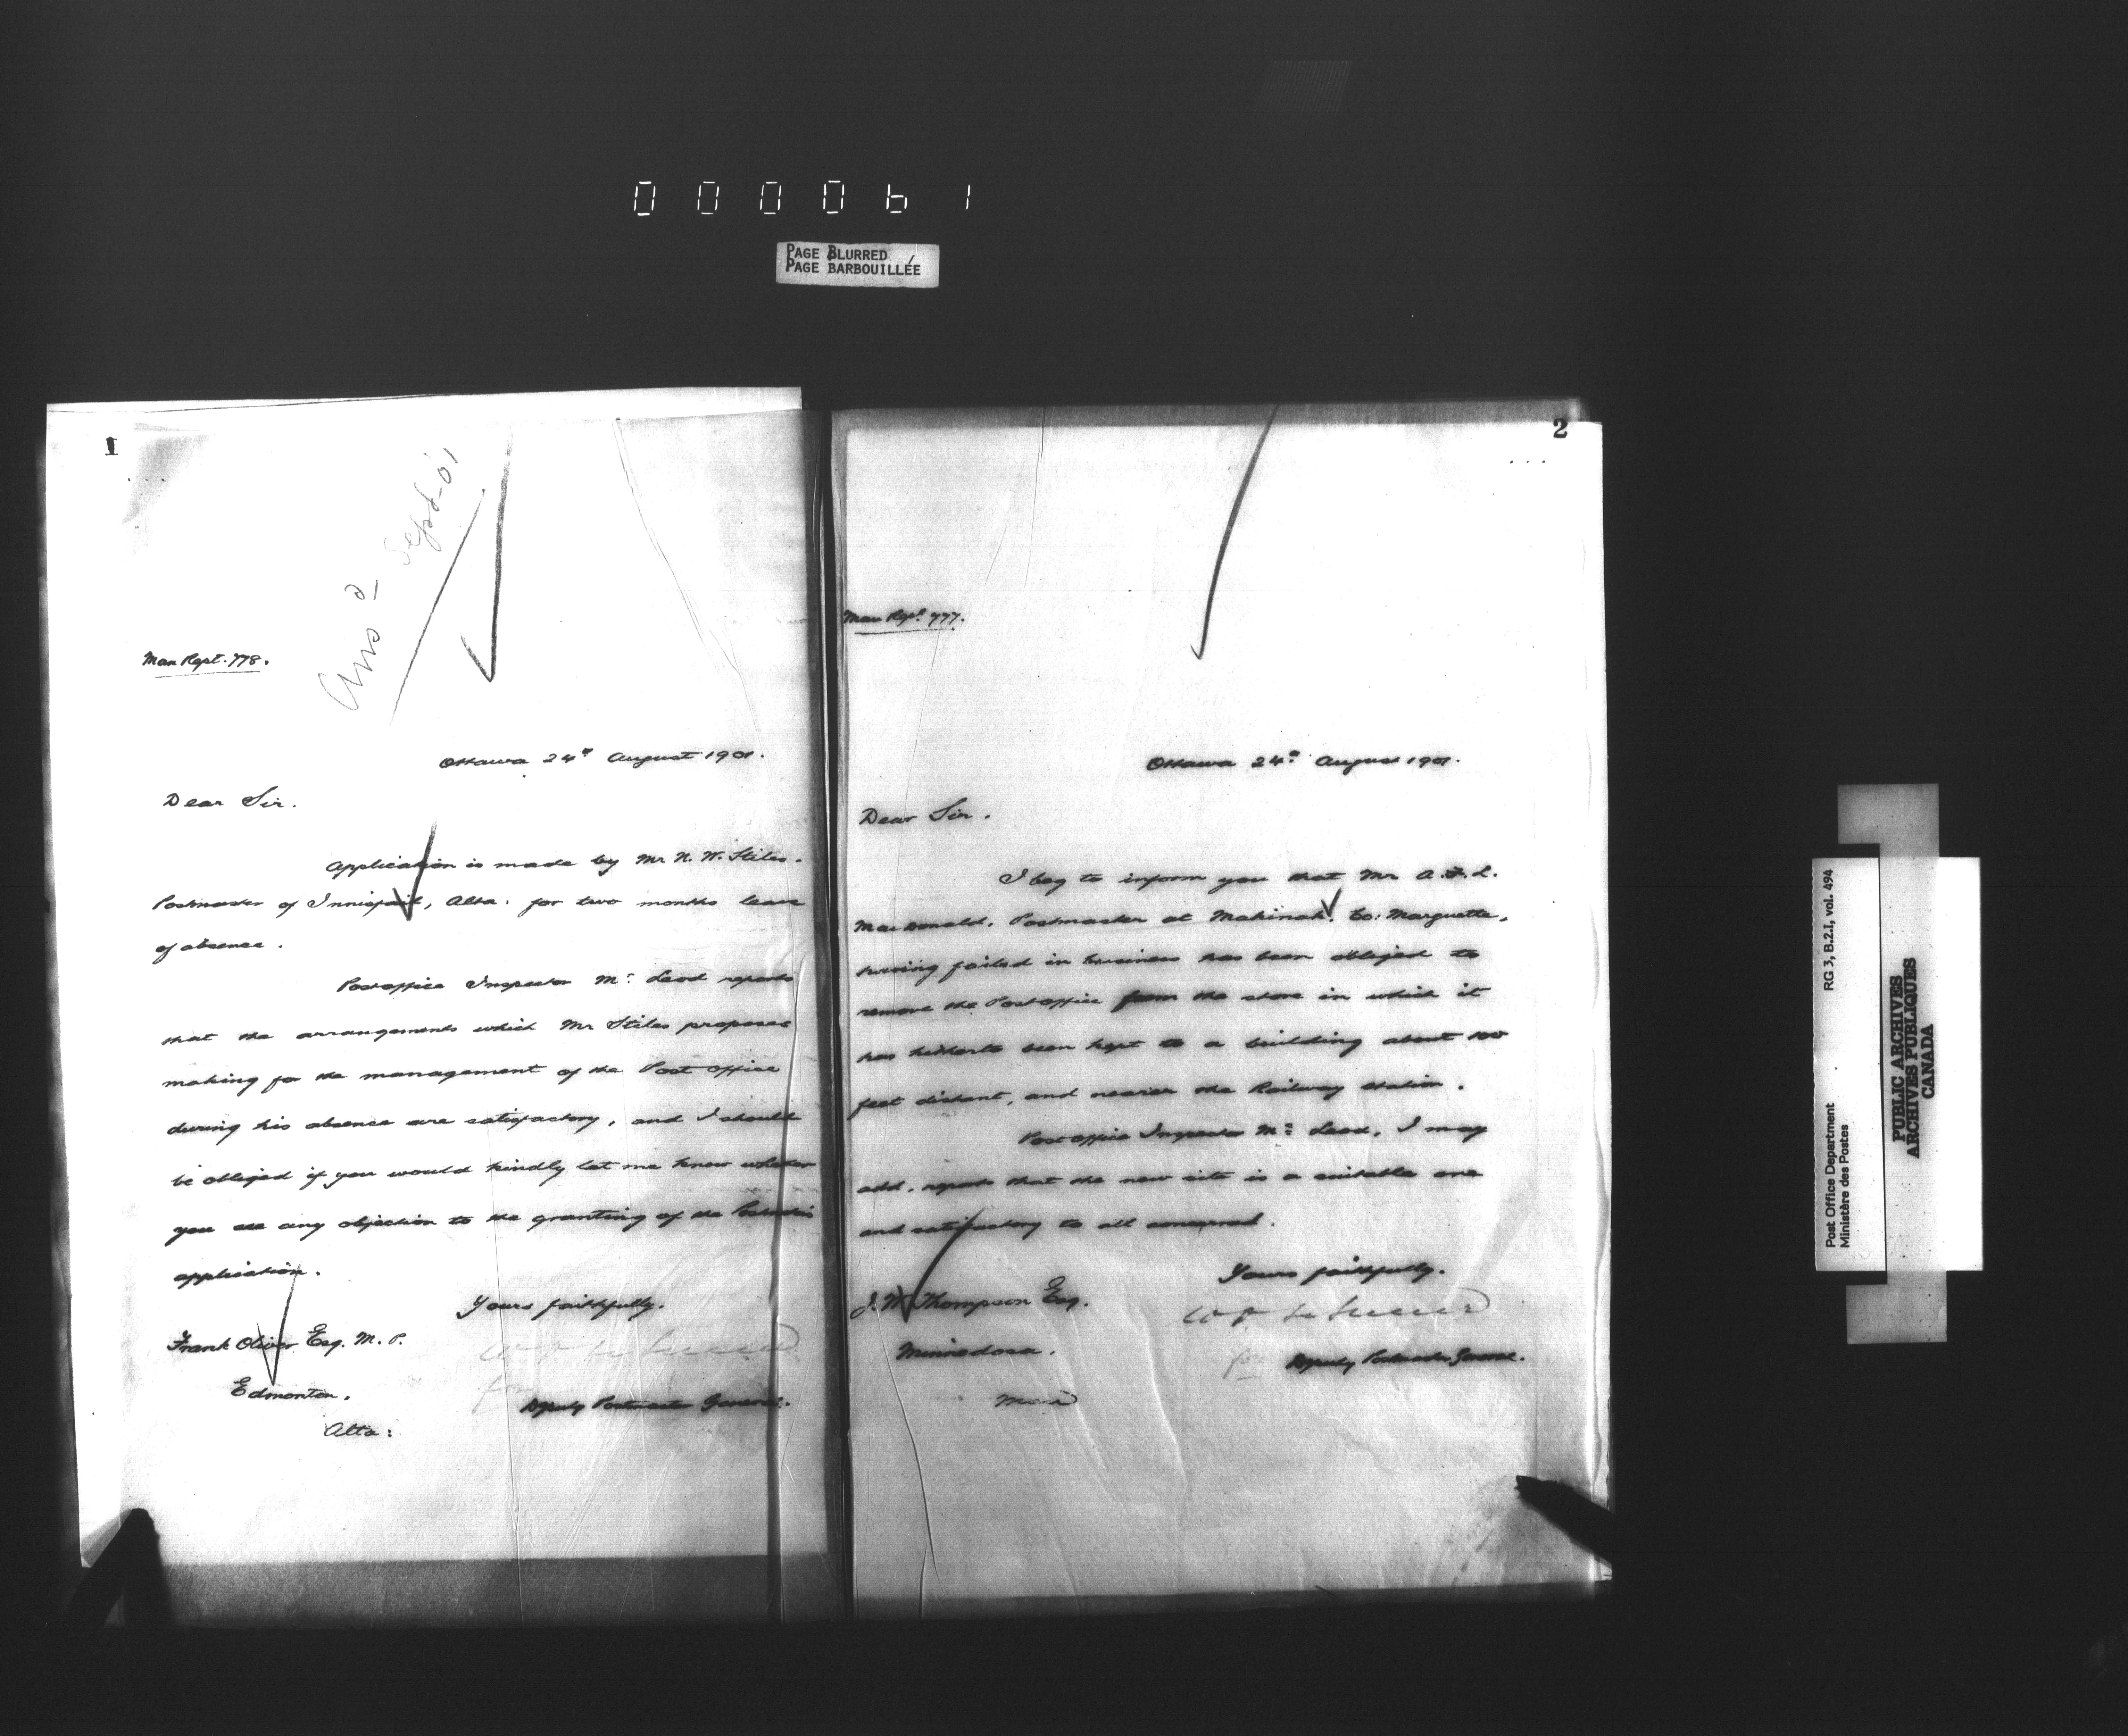 000061
PAGE BLURRED
PAGE BARBOUILLÉE
1
Ans'd Sept-01
Man Rept. 778.
Ottawa 24th August 1901.
Dear Sir.
Application is made by Mr N. W. Stiles.
Postmaster of Innisfail, Alta. for two months leave
of absence.
Postoffice Inspector Mc Leod reports
that the arrangements which Mr Stiles proposes
making for the management of the Post office
during his absence are satisfactory, and I should
be obliged if you would kindly let me know whether
you see any objection to the granting of the Postmaster's
application.
Yours faithfully.
Frank Oliver Esq. M. P.
Edmonton.
Alta:
for
Deputy Postmaster General.
2
Man Rept 777.
Ottawa 24th August 1901.
Dear Sir.
I beg to inform you that Mr A. F. L.
MacDonald. Postmaster at Makinak. Co: Marquette,
having failed in business has been obliged to
remove the Postoffice from the store in which it
has hitherto been kept to a building about 100
feet distant, and nearer the Railway station.
Postoffice Inspector Mc Leod, I may
add, reports that the new site is a suitable one
and satisfactory to all concerned.
Yours faithfully.
J. W. Thompson Esq.
Minnedosa.
Man
for Deputy Postmaster General.
RG 3, B.2.I, vol. 494
Post Office Department
Ministère des Postes
PUBLIC ARCHIVES
ARCHIVES PUBLIQUES
CANADA